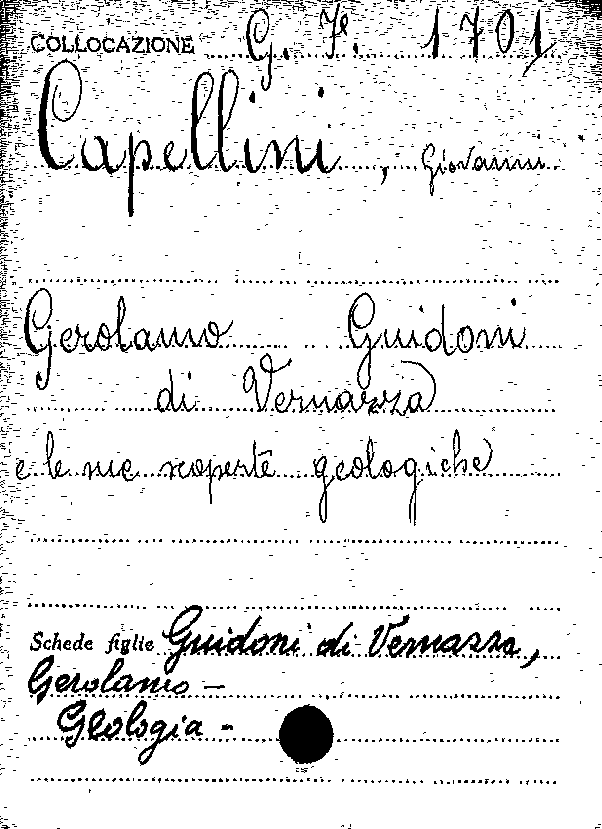 COLLOCAZIONE G. Fe. 1701
Capellini, Giovanni
Gerolamo Guidoni
di Vernazza
e le sue scoperte geologiche
Schede figlie Guidoni di Vernazza,
Gerolamo -
Geologia -